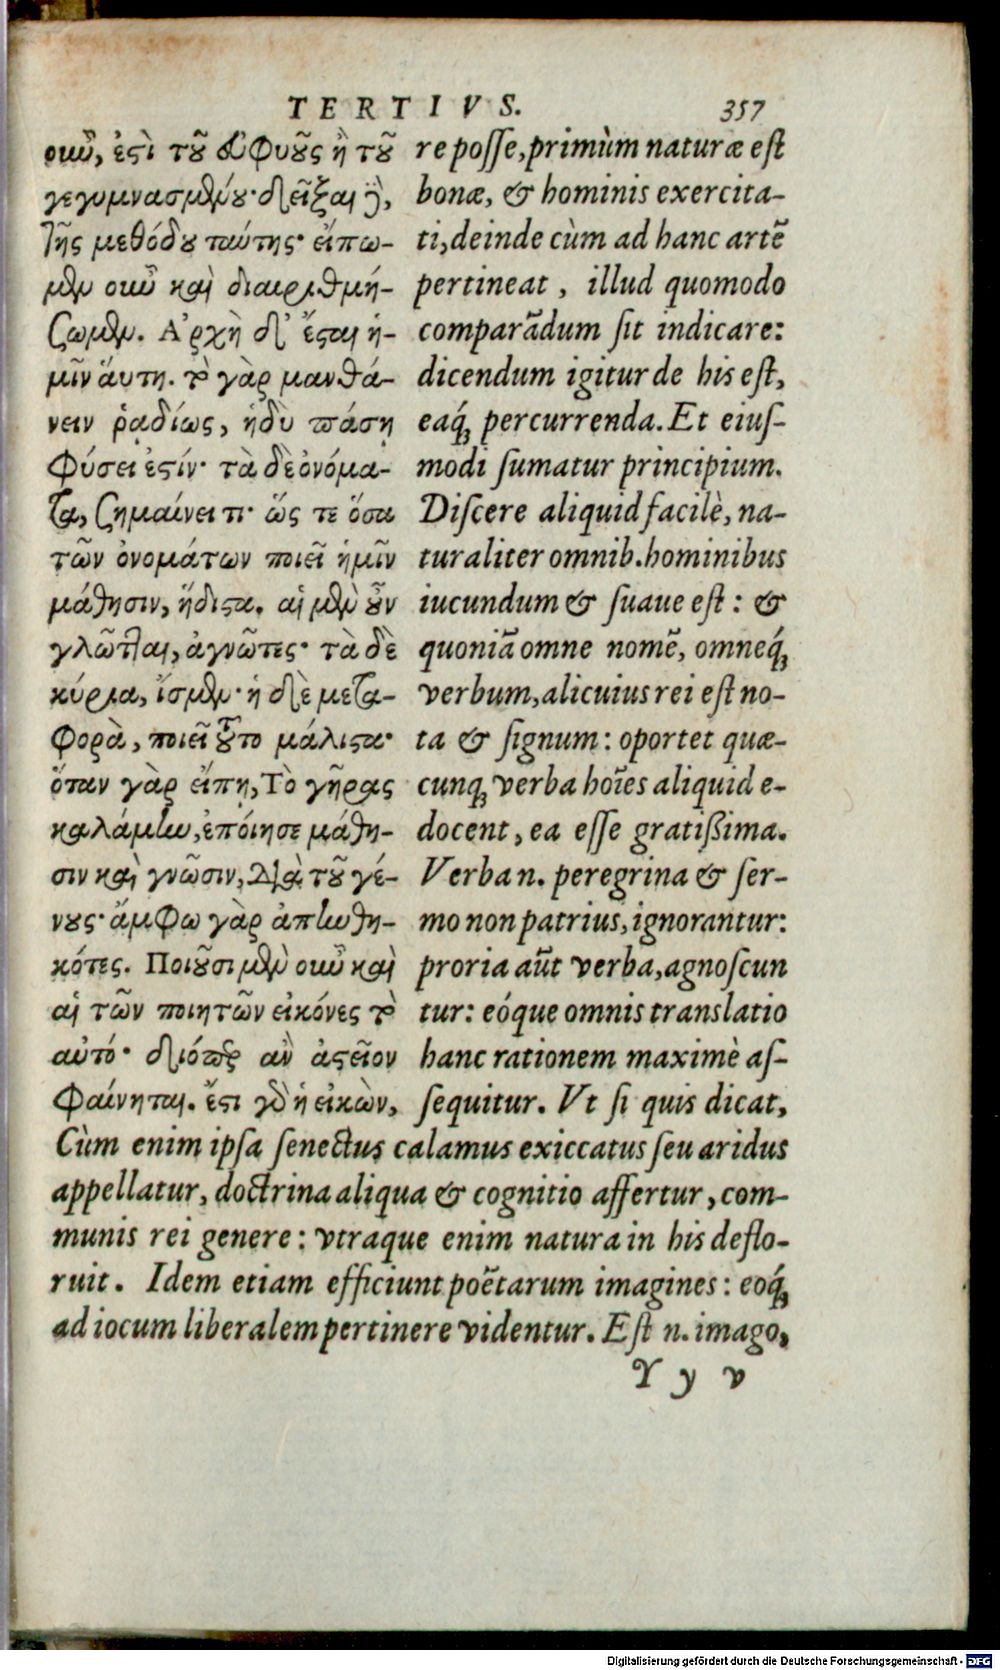 TERTIVS. 357
οὖν, ἐςὶ τοῦ ἐυφυοῦς ἢ τοῦ
γεγυμνασμένου· δεῖξαι δὲ,
τῆς μεθόδου ταύτης· εἴπω-
μεν οὖν καὶ διαριθμή-
σωμεν. Ἀρχὴ δ' ἔςαι ἡ-
μῖν ἅυτη. τὸ γὰρ μανθά-
νειν ῥαδίως, ἡδὺ πάση
φύσει ἐςίν· τὰ δὲ ὀνόμα-
τα, σημαίνει τι· ὥς τε ὅσα
τῶν ὀνομάτων ποιεῖ ἡμῖν
μάθησιν, ἥδιςα. αἱ μὲν οὖν
γλῶτται, ἀγνῶτες· τὰ δὲ
κύρια, ἴσμεν· ἡ δὲ μετα-
φορὰ, ποιεῖ τοῦτο μάλιςα·
ὅταν γὰρ εἴπη, Τὸ γῆρας
καλάμην, ἐπόιησε μάθη-
σιν καὶ γνῶσιν, Διὰ τοῦ γέ-
νους· ἄμφω γὰρ ἀπηνθη-
κότες. Ποιοῦσι μὲν οὖν καὶ
αἱ τῶν ποιητῶν εἰκόνες τὸ
αὐτό· διόπερ ἂν ἀςεῖον
φαίνηται. ἔςι γὰρ ἡ εἰκὼν,
re posse, primùm naturæ est
bonæ, & hominis exercita-
ti, deinde cùm ad hanc artē
pertineat, illud quomodo
comparādum sit indicare:
dicendum igitur de his est,
eaq́; percurrenda. Et eius-
modi sumatur principium.
Discere aliquid facilè, na-
turaliter omnib. hominibus
iucundum & suaue est: &
quoniā omne nomē, omneq́;
verbum, alicuius rei est no-
ta & signum: oportet quæ-
cunq; verba hoīes aliquid e-
docent, ea esse gratißima.
Verba n. peregrina & ser-
mo non patrius, ignorantur:
proria aūt verba, agnoscun
tur: eóque omnis translatio
hanc rationem maximè as-
sequitur. Vt si quis dicat,
Cùm enim ipsa senectus calamus exiccatus seu aridus
appellatur, doctrina aliqua & cognitio affertur, com-
munis rei genere: vtraque enim natura in his deflo-
ruit. Idem etiam efficiunt poëtarum imagines: eoq́;
ad iocum liberalem pertinere videntur. Est n. imago,
Y y v
Digitalisierung gefördert durch die Deutsche Forschungsgemeinschaft - DFG